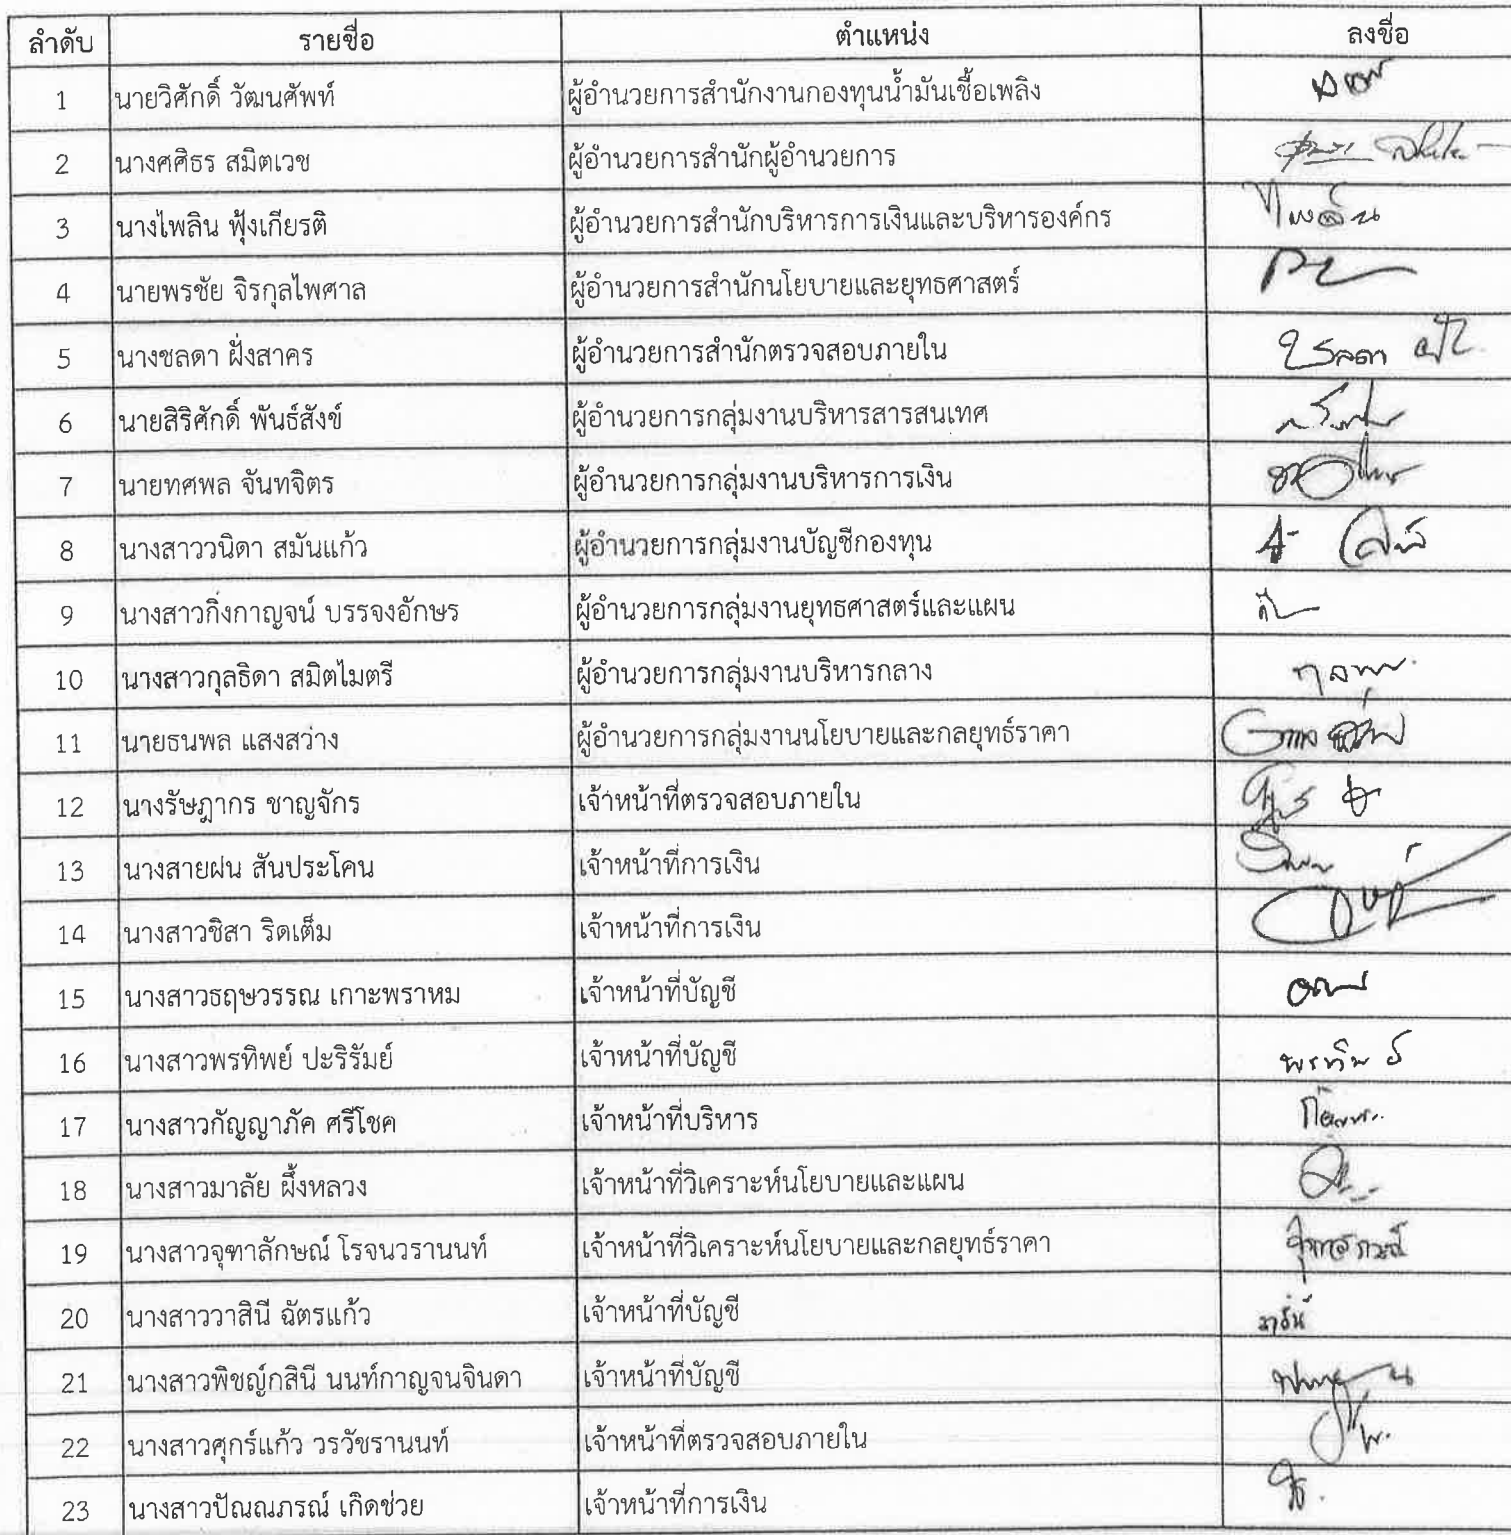 ลำดับ รายชื่อ ตำแหน่ง ลงชื่อ
1 นายวิศักดิ์ วัฒนศัพท์ ผู้อำนวยการสำนักงานกองทุนน้ำมันเชื้อเพลิง
2 นางศศิธร สมิตเวช ผู้อำนวยการสำนักผู้อำนวยการ
3 นางไพลิน ฟุ้งเกียรติ ผู้อำนวยการสำนักบริหารการเงินและบริหารองค์กร
4 นายพรชัย จิรกุลไพศาล ผู้อำนวยการสำนักนโยบายและยุทธศาสตร์
5 นางชลดา ฝั่งสาคร ผู้อำนวยการสำนักตรวจสอบภายใน
6 นายสิริศักดิ์ พันธ์สังข์ ผู้อำนวยการกลุ่มงานบริหารสารสนเทศ
7 นายทศพล จันทจิตร ผู้อำนวยการกลุ่มงานบริหารการเงิน
8 นางสาววนิดา สมันแก้ว ผู้อำนวยการกลุ่มงานบัญชีกองทุน
9 นางสาวกิ่งกาญจน์ บรรจงอักษร ผู้อำนวยการกลุ่มงานยุทธศาสตร์และแผน
10 นางสาวกุลธิดา สมิตไมตรี ผู้อำนวยการกลุ่มงานบริหารกลาง
11 นายธนพล แสงสว่าง ผู้อำนวยการกลุ่มงานนโยบายและกลยุทธ์ราคา
12 นางรัษฎากร ชาญจักร เจ้าหน้าที่ตรวจสอบภายใน
13 นางสายฝน สันประโคน เจ้าหน้าที่การเงิน
14 นางสาวชิสา ริดเต็ม เจ้าหน้าที่การเงิน
15 นางสาวธฤษวรรณ เกาะพราหม เจ้าหน้าที่บัญชี
16 นางสาวพรทิพย์ ปะริรัมย์ เจ้าหน้าที่บัญชี
17 นางสาวกัญญาภัค ศรีโชค เจ้าหน้าที่บริหาร
18 นางสาวมาลัย ผึ้งหลวง เจ้าหน้าที่วิเคราะห์นโยบายและแผน
19 นางสาวจุฑาลักษณ์ โรจนวรานนท์ เจ้าหน้าที่วิเคราะห์นโยบายและกลยุทธ์ราคา
20 นางสาววาสินี ฉัตรแก้ว เจ้าหน้าที่บัญชี
21 นางสาวพิชญ์กสินี นนท์กาญจนจินดา เจ้าหน้าที่บัญชี
22 นางสาวศุกร์แก้ว วรวัชรานนท์ เจ้าหน้าที่ตรวจสอบภายใน
23 นางสาวปัณณภรณ์ เกิดช่วย เจ้าหน้าที่การเงิน